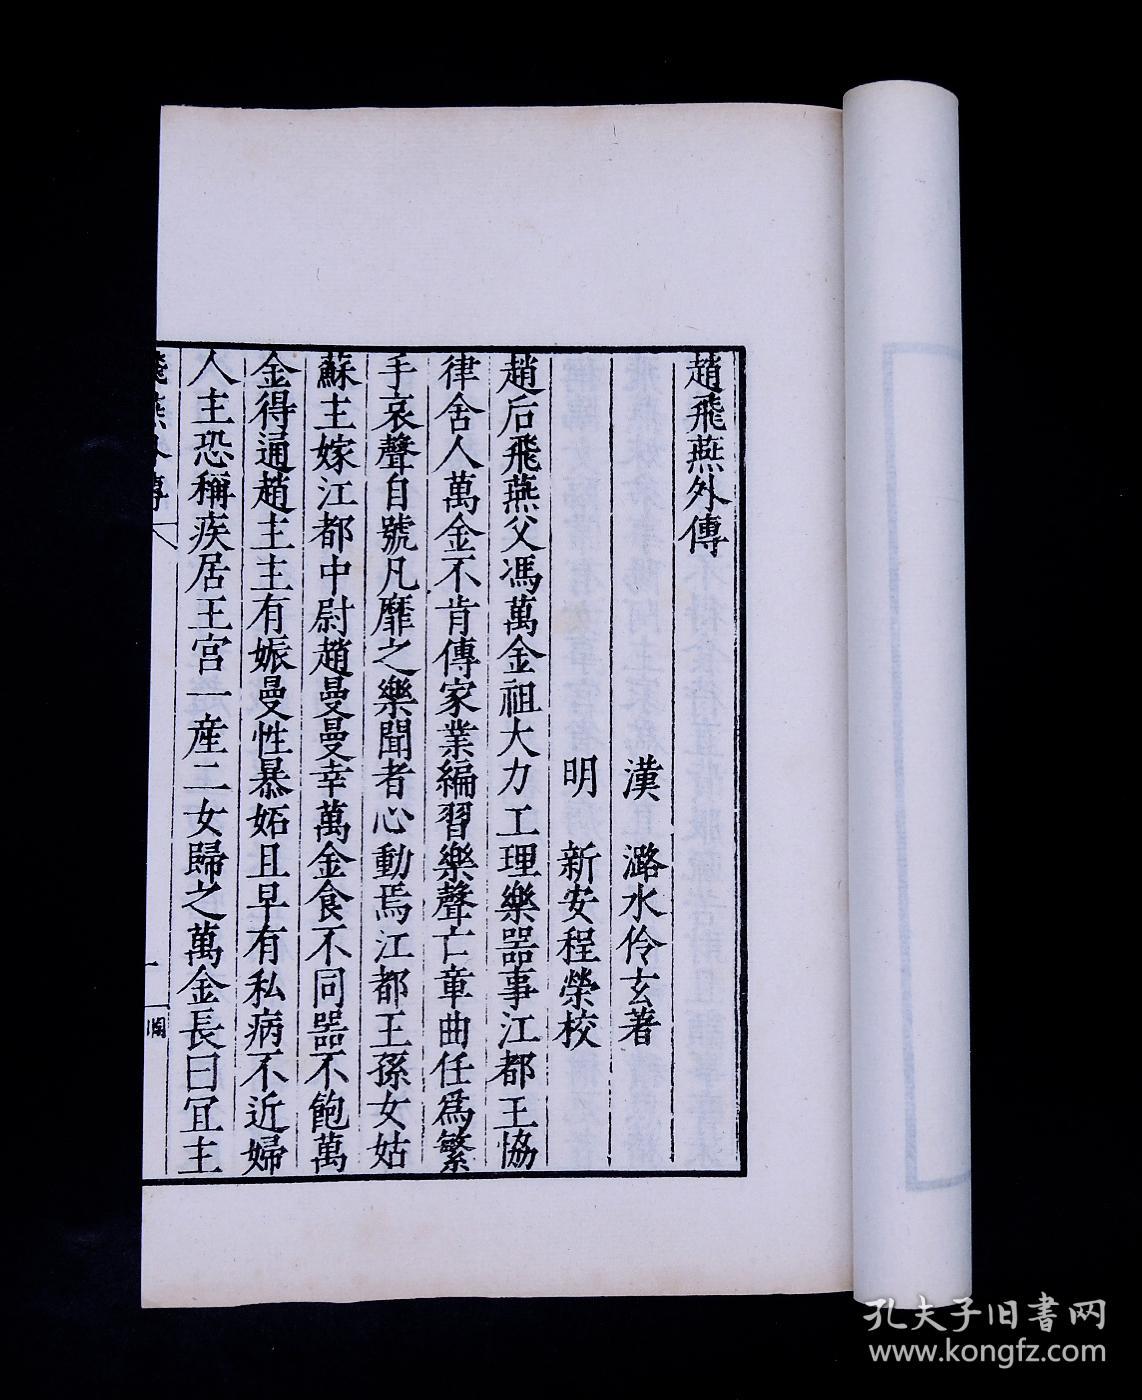 趙飛燕外傳
漢 潞水伶玄著
明 新安程榮校
趙后飛燕父馮萬金祖大力工理樂器事江都王協
律舍人萬金不肯傳家業編習樂聲亡章曲任爲繁
手哀聲自號凡靡之樂聞者心動焉江都王孫女姑
蘇主嫁江都中尉趙曼曼幸萬金食不同器不飽萬
金得通趙主主有娠曼性暴妬且早有私病不近婦
人主恐稱疾居王宮一產二女歸之萬金長曰宜主
飛燕外傳
一
孔夫子旧書网
www.kongfz.com